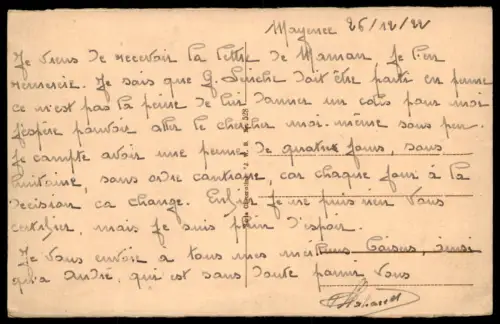 Mayence 26/12/22
Je viens de recevoir la lettre de Maman, je l'en
remercie. Je sais que G. doit être parti en perme
ce n'est pas la peine de lui donner un colis pour moi
J'espère pouvoir aller le chercher moi-même sous peu.
Je compte avoir une perme de quatre jours, sous
huitaine, sans ordre contraire, car chaque jour à la
décision ça change. Enfin je ne puis rien vous
certifier, mais je suis plein d'espoir.
Je vous envoie à tous mes meilleurs baisers, ainsi
qu'à André, qui est sans doute parmi vous